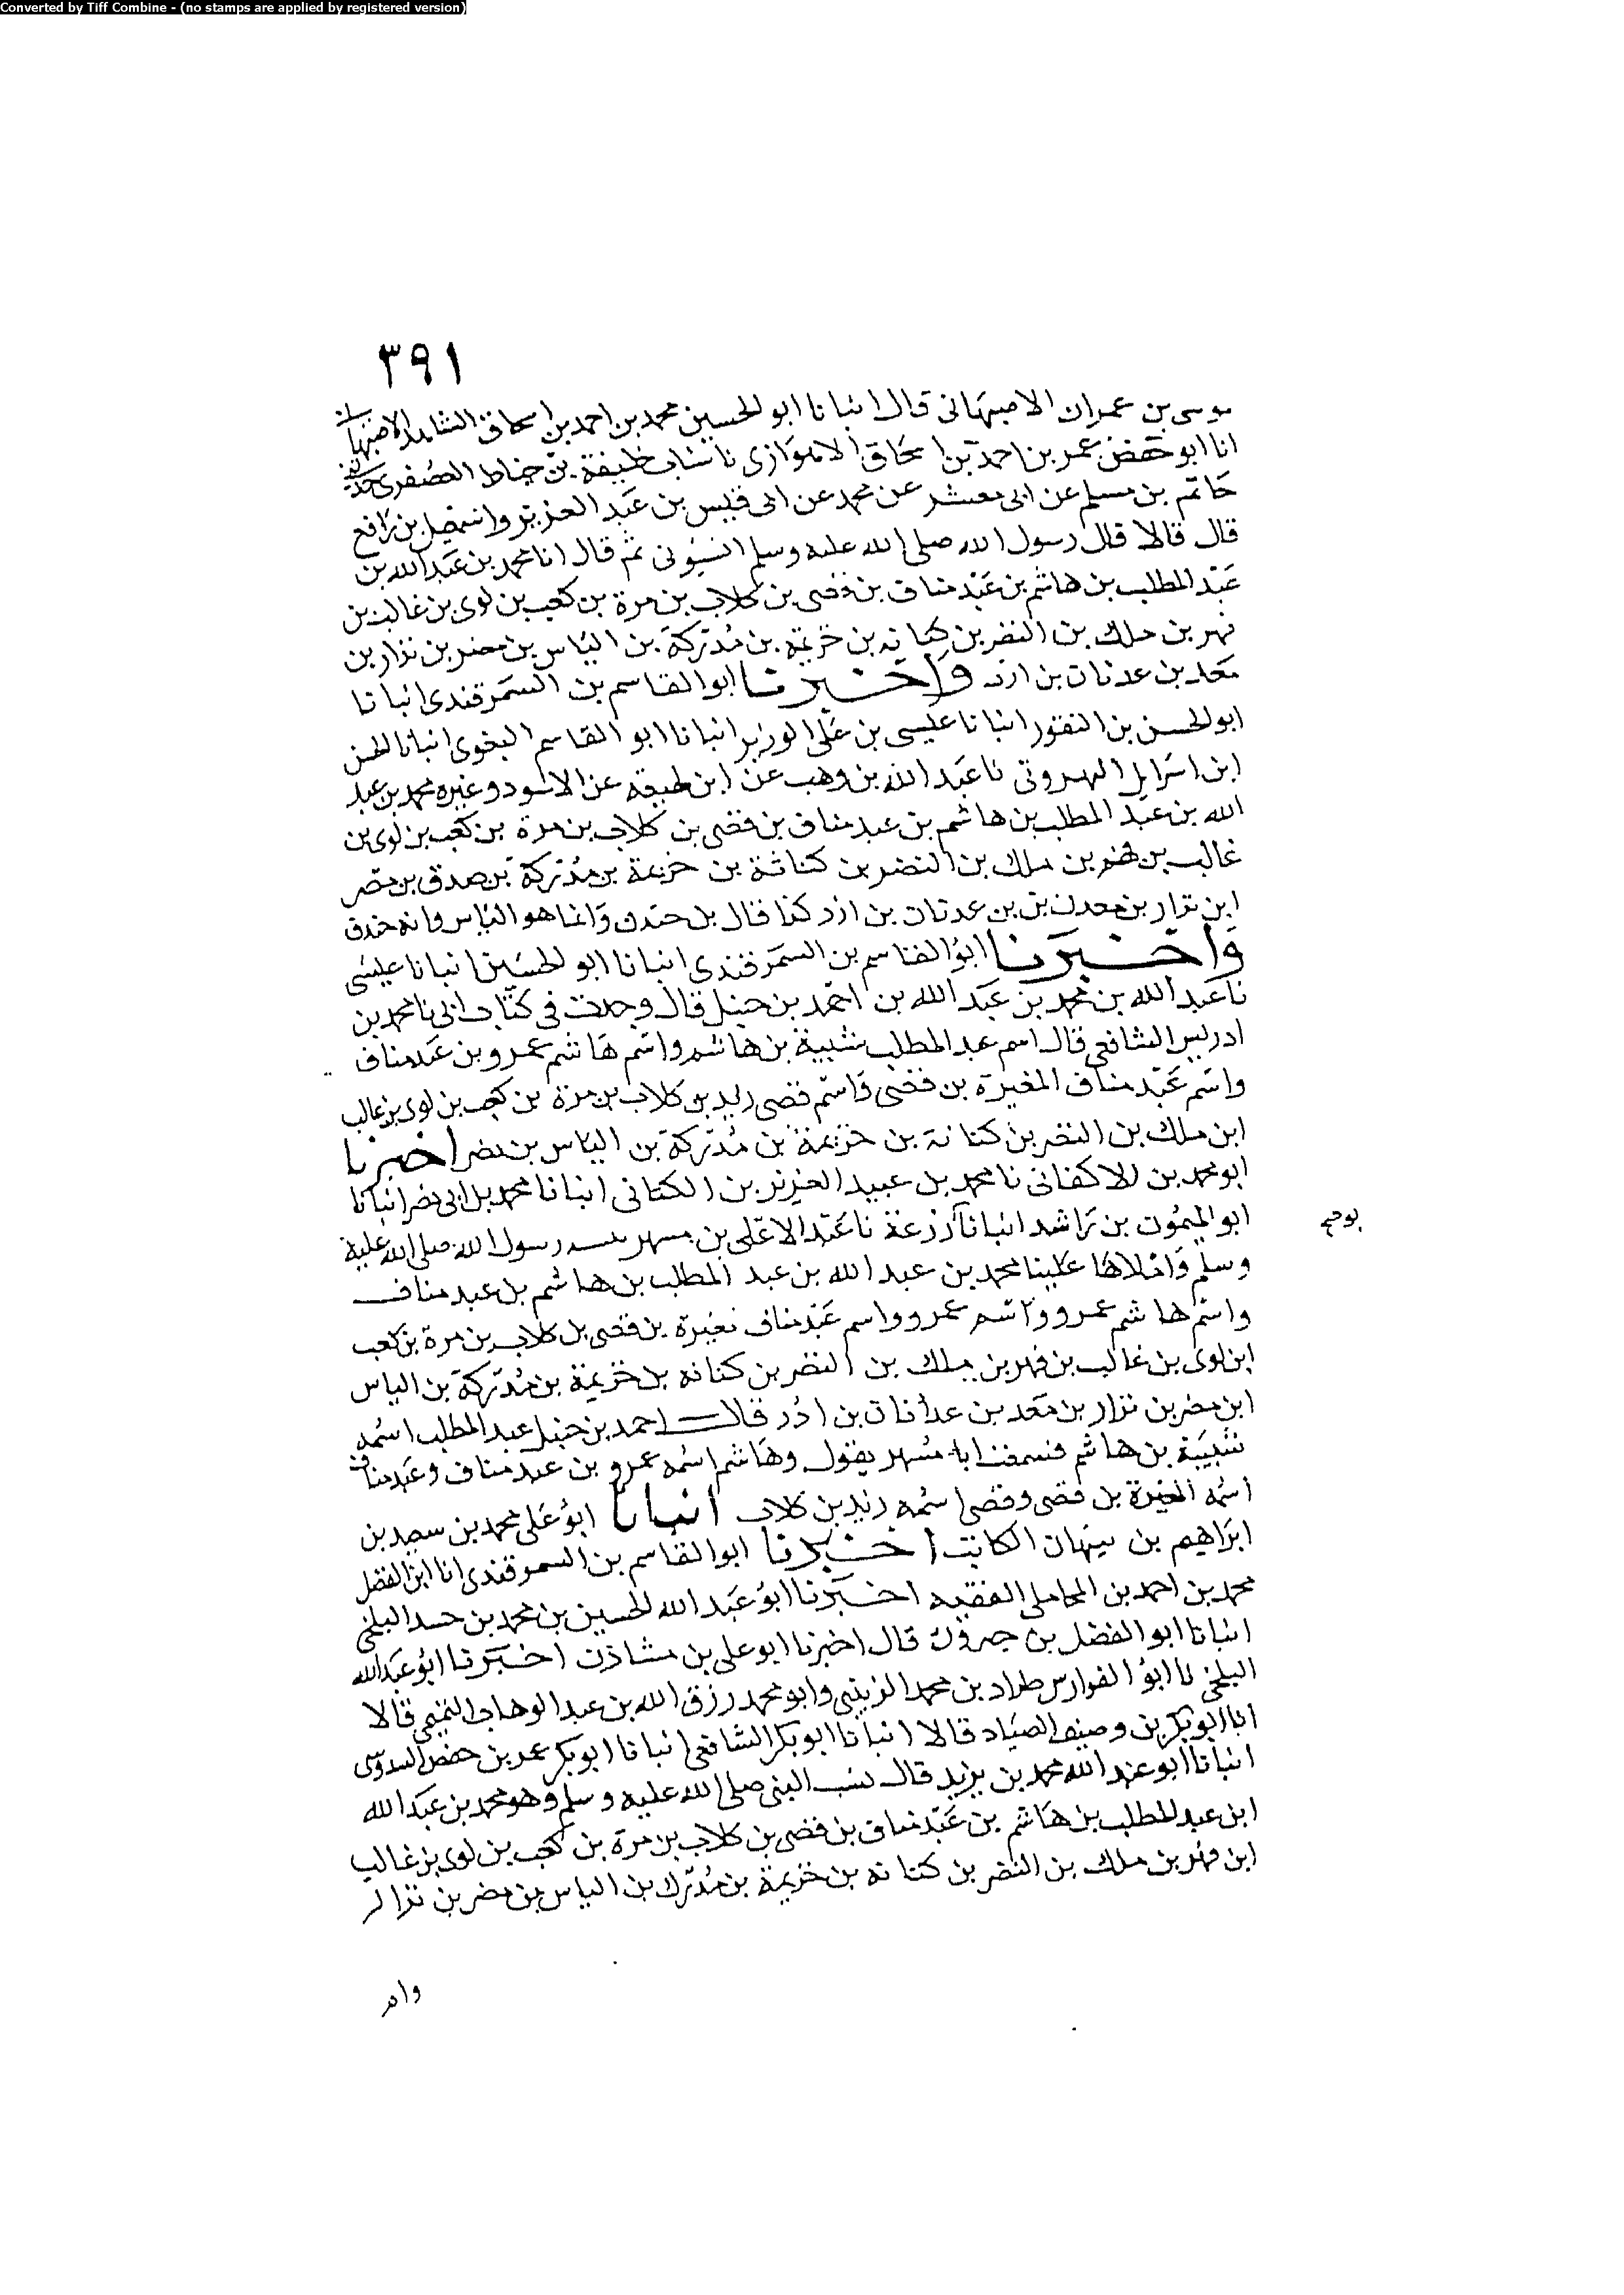 Converted by Tiff Combine - (no stamps are applied by registered version)
٣٩١
موسى بن عمران الاصبهانى قال انبانا ابو الحسين محمد بن احمد بن اسحاق الشاهد الاصبهانى
انا ابو حفض عمر بن احمد بن اسحاق الاهوازى نا شباب خليفة بن خياط العصفرى
حاتم بن مسلم عن ابى معشر عن محمد عن ابى قيس بن عبد العزيز واسمعيل بن رافع
قال قالا قال رسول الله صلى الله عليه وسلم انسبونى ثم قال انا محمد بن عبد الله بن
عبد المطلب بن هاشم بن عبد مناف بن قصى بن كلاب بن مرة بن كعب بن لوى بن غالب بن
فهر بن ملك بن النضر بن كنانه بن خزيمة بن مدركة بن الياس بن مضر بن نزار بن
معد بن عدنان بن ادد واخبرنا ابو القاسم بن السمرقندى انبانا
ابو الحسن بن النقور انبانا عيسى بن على الوزير انبانا ابو القاسم البغوى انبانا الحسن
ابن اسرايل النهروتى نا عبد الله بن وهب عن ابن لهيعه عن الاسود وغيره محمد بن عبد
الله بن عبد المطلب بن هاشم بن عبد مناف بن قصى بن كلاب بن مرة بن كعب بن لوى بن
غالب بن فهر بن ملك بن النضر بن كنانة بن خزيمة بن مدركة بن صدق بن مضر
ابن نزار بن معد بن بن عدنان بن ادد كذا قال بن حندف وانما هو الياس وانه خندف
واخبرنا ابو القاسم بن السمرقندى انبانا ابو الحسين انبانا عيسى
نا عبد الله بن محمد بن عبد الله بن احمد بن حنبل قال وجدت فى كتاب ابى نا محمد بن
ادريس الشافعى قال اسم عبد المطلب شيبة بن هاشم واسم هاشم عمرو بن عبد مناف
واسم عبد مناف المغيرة بن قصى واسم قصى زيد بن كلاب بن مرة بن كعب بن لوى بن غالب
ابن ملك بن النضر بن كنانة بن خزيمة بن مدركة بن الياس بن مضر اخبرنا
ابو محمد بن الاكفانى نا محمد بن عبيد العزيز بن الكتانى انبانا محمد بن ابى نصر انبانا
ابو الميمون بن راشد انبانا زرعة نا عبد الاعلى بن مسهر رسول الله صلى الله عليه
وسلم واملاها علينا محمد بن عبد الله بن عبد المطلب بن هاشم بن عبد مناف
واسم هاشم عمرو واسم عمرو واسم عبد مناف مغيرة بن قصى بن كلاب بن مرة بن كعب
ابن لوى بن غالب بن فهر بن ملك بن النضر بن كنانه بن خزيمة بن مدركة بن الياس
ابن مضر بن نزار بن معد بن عدنان بن ادد قال احمد بن حنبل عبد المطلب اسمه
شيبة بن هاشم فسمعت ابا مسهر يقول وهاشم اسمه عمرو بن عبد مناف وعبد مناف
اسمه المغيرة بن قصى وقصى اسمه زيد بن كلاب انبانا ابو على محمد بن سعيد بن
ابراهيم بن نبهان الكاتب اخبرنا ابو القاسم بن السمرقندى انا ابو الفضل
محمد بن احمد بن المحاملى الفقيه اخبرنا ابو عبد الله الحسين بن محمد بن حسد البلخى
انبانا ابو الفضل بن خيرون قال اخبرنا ابو على بن شاذان اخبرنا ابو عبد الله
البلخى نا ابو الفوارس طراد بن محمد الزينبى وابو محمد رزق الله بن عبد الوهاب التميمى قالا
انا ابو بكر بن وصيف الصياد قالا انبانا ابو بكر الشافعى انبانا ابو بكر عمر بن حفص السدوسى
انبانا ابو عبد الله محمد بن يزيد قال نسب النبى صلى الله عليه وسلم وهو محمد بن عبد الله
ابن عبد المطلب بن هاشم بن عبد مناف بن قصى بن كلاب بن مرة بن كعب بن لوى بن غالب
ابن فهر بن ملك بن النضر بن كنانه بن خزيمة بن مدرك بن الياس بن مضر بن نزار
وام